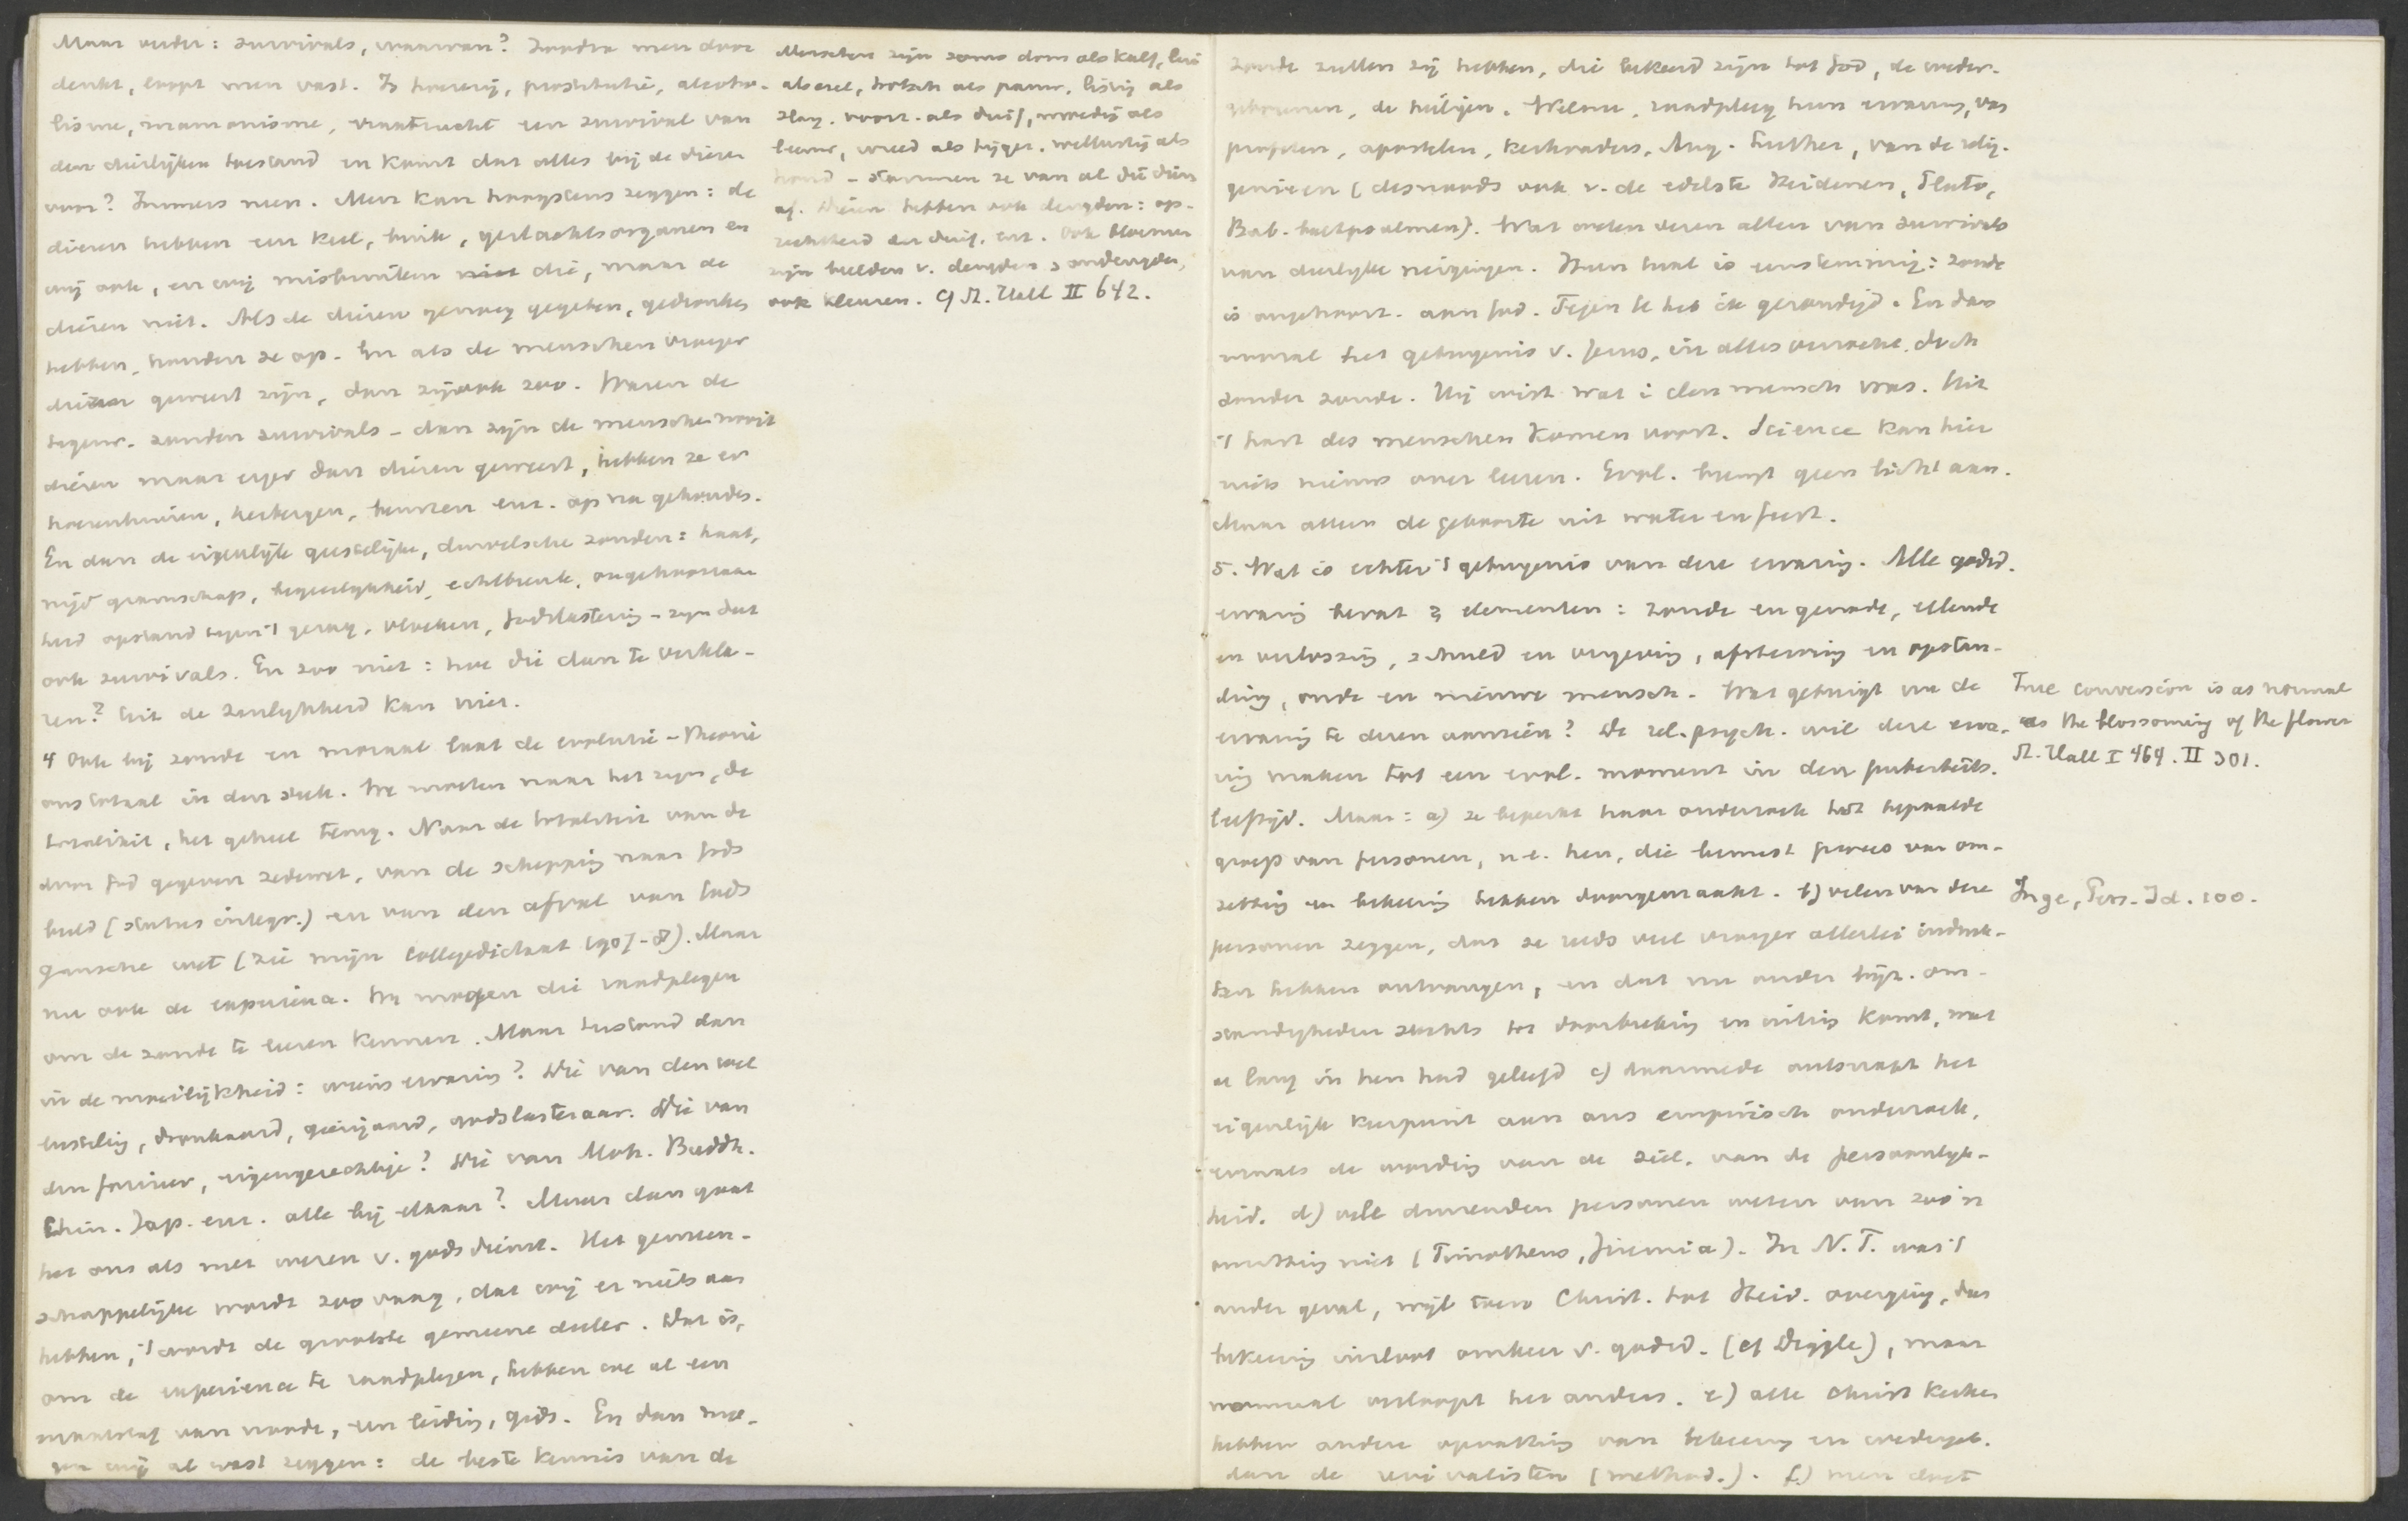 Maar verder: survivals, waarvan? Zoodra men door
denkt, loopt men vast. Is hoererij, prostitutie, alcoho-
lisme, mammonisme, vraatzucht een survival van
den dierlijken toestand en komt dat alles bij de dieren
voor? Immers neen. Men kan hoogstens zeggen: de
dieren hebben een keel, buik, geslachtsorganen en
wij ook, en wij misbruiken die, maar de
dieren niet. Als de dieren genoeg gegeten, gedronken
hebben, houden ze op. En als de menschen vroeger
dieren geweest zijn, dan zij ook zoo. Waren de
tegenw. zonden survivals - dan zijn de menschen nooit
dieren maar erger dan dieren geweest, hebben ze er
hoerenhuizen, herbergen, beurzen enz. op na gehouden.
En dan de eigenlijke geestelijke, duivelsche zonden: haat,
nijd gramschap, begeerlijkheid, echtbreuk, ongehoorzaam
heid opstand tegen 't gezag, vloeken, Godslastering - zijn dat
ook survivals. En zoo niet: hoe die dan te verkla-
ren? Uit de zinlijkheid kan niet.
4 Ook bij zonde en moraal laat de evolutie-theorie
ons totaal in den steek. We moeten naar het zijn, de
totaliteit, het geheel terug. Naar de totaliteit van de
door God gegeven zedewet, van de schepping naar Gods
beeld (status integr.) en van den afval van Gods
gansche wet (zie mijn Collegedictaat 1907-8). Maar
nu ook de experience. We mogen die raadplegen
om de zonde te leeren kennen. Maar terstond dan
in de moeilijkheid: wiens ervaring? Die van den wel
lusteling, dronkaard, gierigaard, godslasteraar. Die van
den farizeer, eigengerechtige? Die van Moh. Buddh.
Chin. Jap. enz. alle bij elkaar? Maar dan gaat
het ons als met wezen v. godsdienst. Het gemeen-
schappelijke wordt zoo vaag, dat wij er niets aan
hebben, 't wordt de grootste gemeene deeler. Dat is,
om de experience te raadplegen, hebben we al een
maatstaf van noode, een leiding, gids. En dan mo-
gen wij al vast zeggen: de beste kennis van de
Menschen zijn soms dom als kalf, lui
als ezel, trotsch als pauw, listig als
slang. voorz. als duif, moedig als
leeuw, wreed als tijger. wellustig als
hond - stammen ze van al die dieren
af. Dieren hebben ook deugden: op-
rechtheid der duif. enz. Ook bloemen
zijn beelden v. deugden & ondeugden,
ook kleuren. Cf St. Hall II 642.
zonde zullen zij hebben, die bekeerd zijn tot God, de weder-
geborenen, de heiligen. Welnu, raadpleeg hun ervaring, van
profeten, apostelen, kerkvaders, Aug. Luther, van de relig.
genieen (desnoods ook v. de edelste Heidenen, Plato,
Bab. boetpsalmen). Wat weten dezen allen van survivals
van dierlijke neigingen. Hun taal is eenstemmig: zonde
is ongehoorz. aan God. Tegen U heb ik gezondigd. En dan
vooral het getuigenis v. Jezus, in alles verzocht, doch
zonder zonde. Hij wist wat i den mensch was. Uit
't hart des menschen komen voort. Science kan hier
niets nieuws over leeren. Evol. brengt geen licht aan.
Maar alleen de geboorte uit water en geest.
5. Wat is echter 't getuigenis van deze ervaring. Alle godsd.
ervaring bevat 2 elementen: zonde en genade, ellende
en verlossing, schuld en vergeving, afsterving en opstan-
ding, oude en nieuwe mensch. Wat getuigt nu de
ervaring te dezen aanzien? De rel. psych. wil deze erva-
ring maken tot een evol. moment in den puberteits-
leeftijd. Maar: a) ze beperkt haar onderzoek tot bepaalde
groep van personen, n.l. hen, die bewust proces van om-
zetting en bekeering hebben doorgemaakt. b) velen van deze
personen zeggen, dat ze reeds veel vroeger allerlei indruk-
ken hebben ontvangen, en dat nu onder bijz. om-
standigheden slechts tot doorbreking en uiting komt, wat
al lang in hen had geleefd c) daarmede ontsnapt het
eigenlijk keerpunt aan ons empirisch onderzoek,
evenals de wording van de ziel, van de persoonlijk-
heid. d) vele duizenden personen weten van zoo'n
omzetting niet (Timotheus, Jeremia). In N. T. was 't
ander geval, wijl toen Christ. tot Heid. overging, dus
bekeering insloot omkeer v. godsd. (cf Diggle), maar
normaal verloopt het anders. e) alle Christ kerken
hebben andere opvatting van bekeering en wedergeb.
dan de revivalisten (method.). f) men doet
True conversion is as normal
as the blossoming of the flower
St. Hall I 464. II 301.
Inge, Pers. Id. 100.